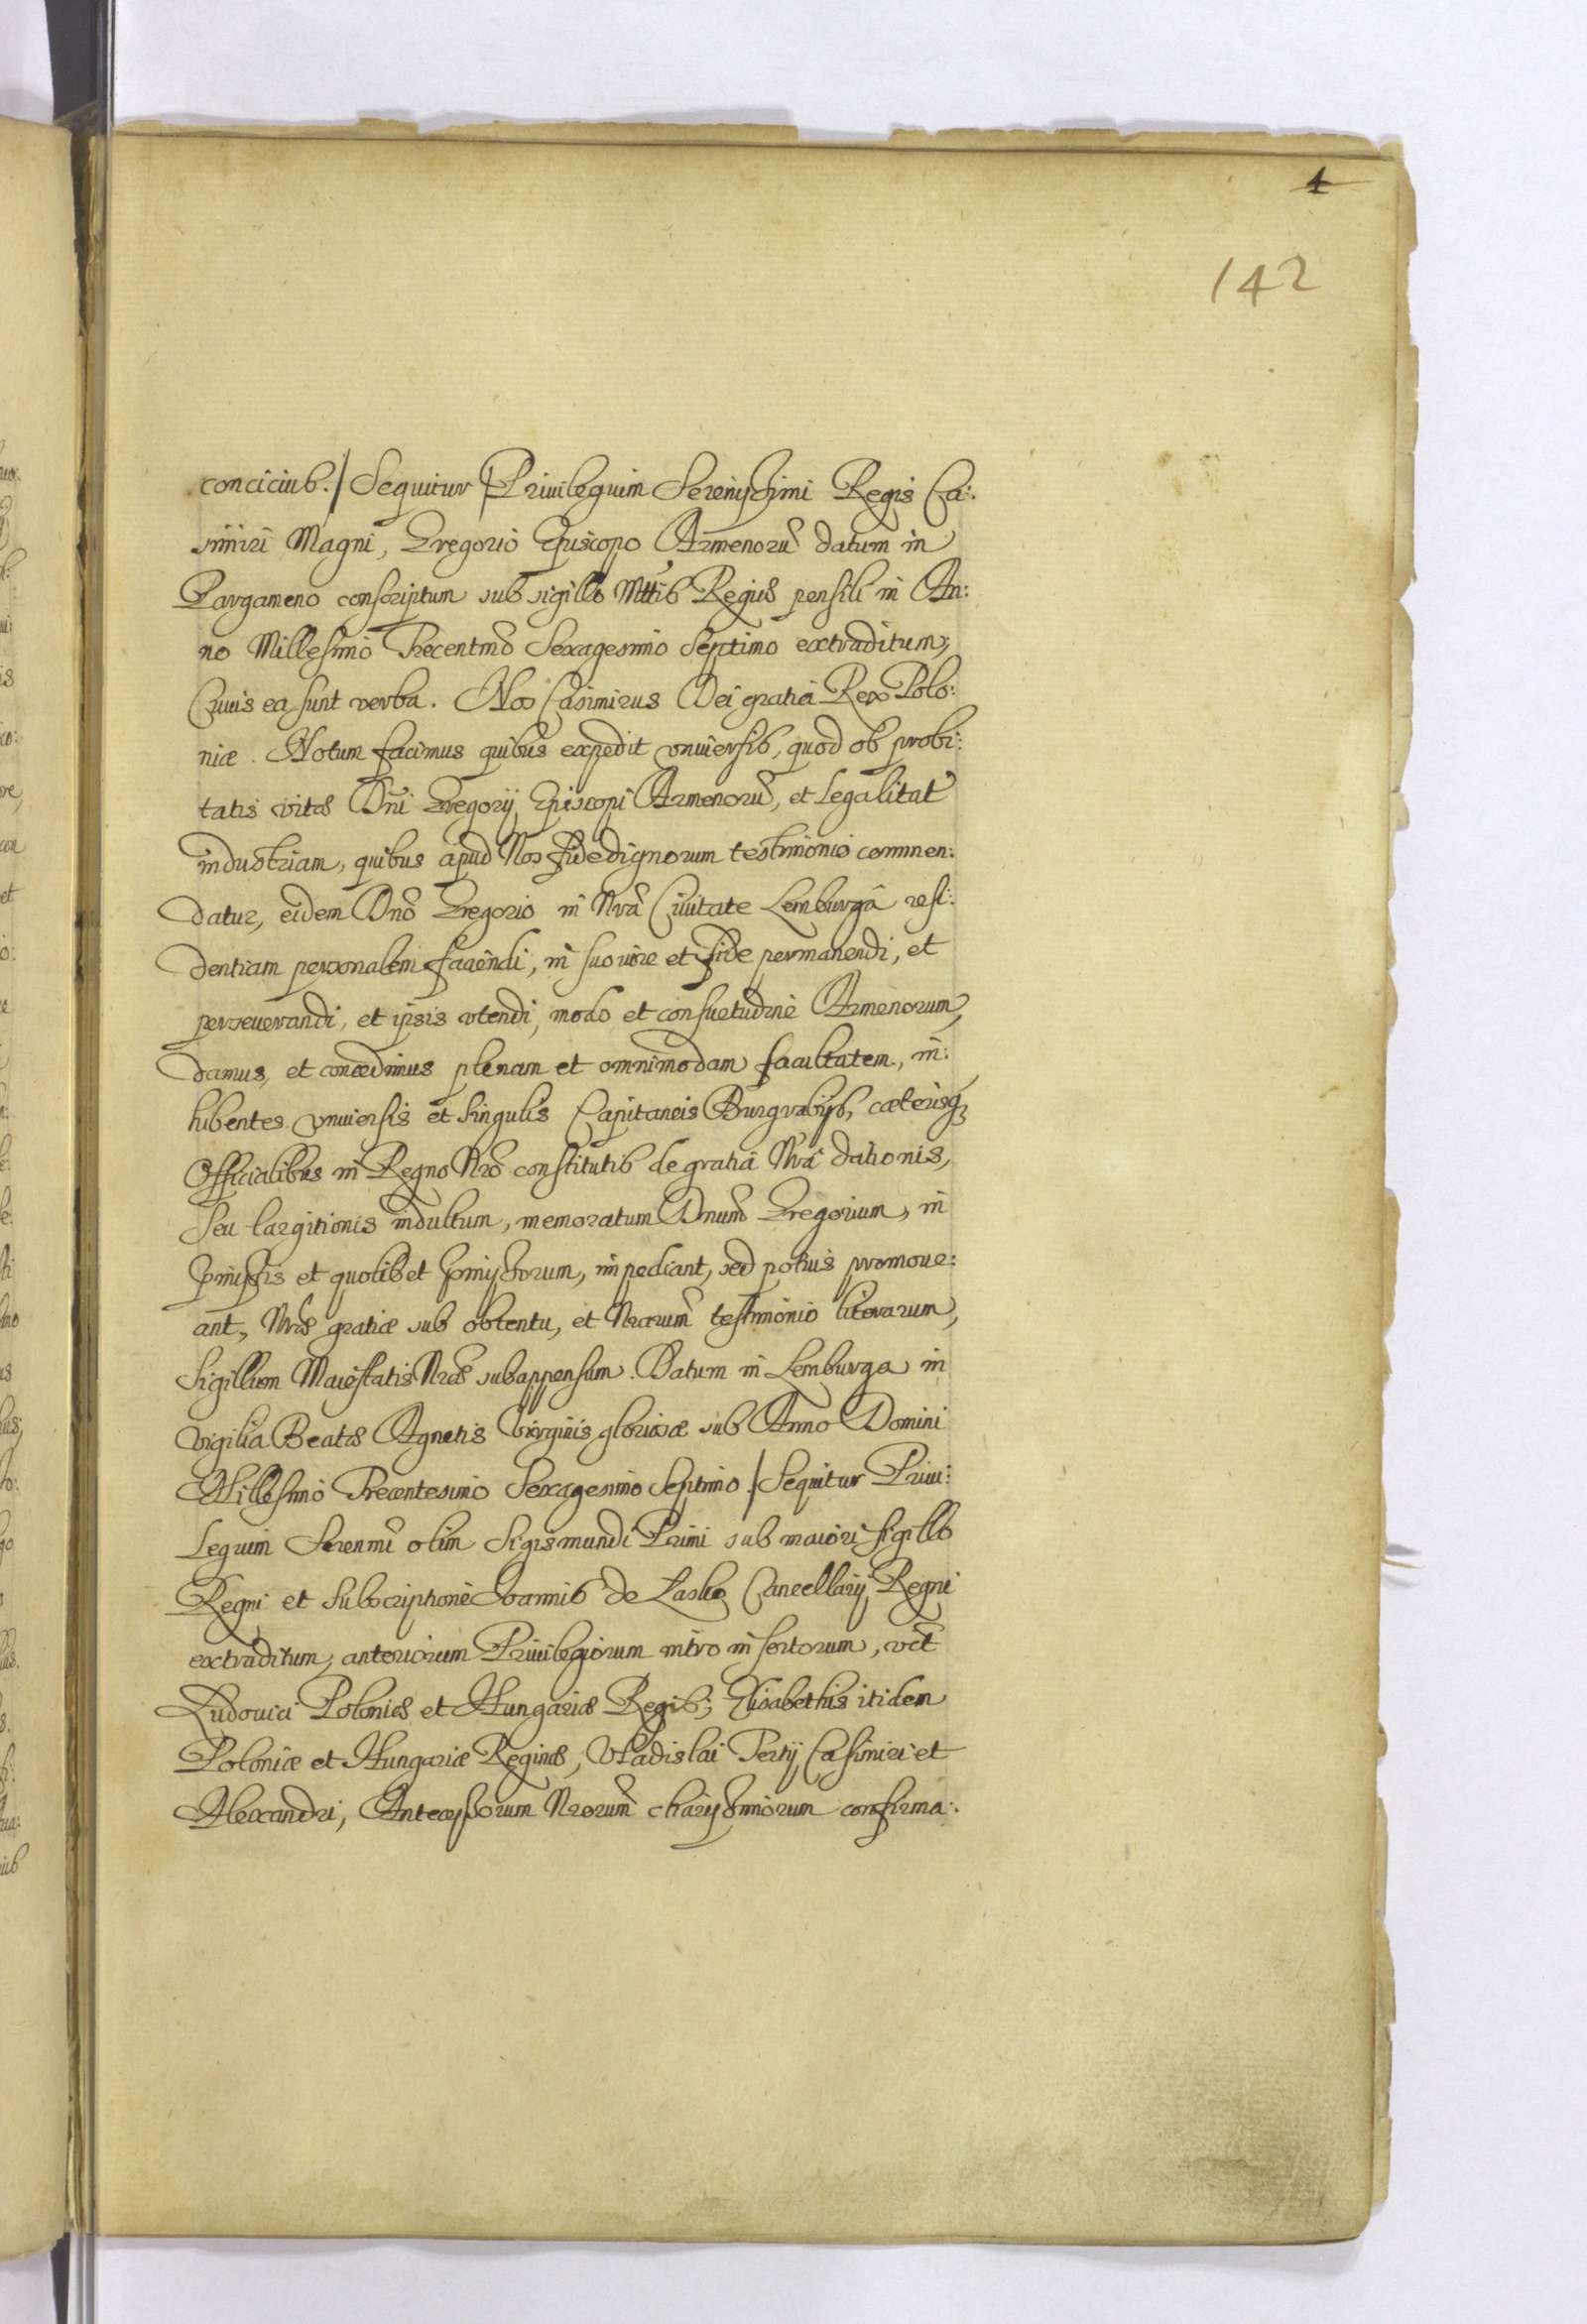 4
142
conciciub. / Sequitur Priuilegium Serenissimi Regis Ca:
simiri Magni, Gregorio Episcopo Armenorũ datum in
Pargameno conscriptum sub sigillo Mttis Regiæ pensili in An:
no Millesimo Trecentmo Sexagesimo Septimo extraditum,
Cuius ea sunt verba. Nos Casimirus Dei gratia Rex Polo:
niæ. Notum facimus quibus expedit vniuersis, quod ob probi:
tatis vitæ Dñi Gregorij Episcopi Armenorũ, et Legalitat
industriam, quibus apud Nos fidedignorum testimonio commen:
datur, eidem Dnõ Gregorio in Nrã Ciuitate Lemburgâ resi:
dentiam personalem faciendi, in suo iure et fide permanendi, et
perseuerandi, et ipsis vtendi, modo et consuetudine Armenorum,
damus, et concedimus plenam et omnimodam facultatem, in:
hibentes vniuersis et singulis Capitaneis Burgrabijs, cæterisq
Officialibus in Regno Nrõ constitutis de gratia Nrã dationis,
Seu largitionis indultum, memoratum Dnum Gregorium, in
pmissis et quolibet pmissorum, impediant, sed potius promoue:
ant, Nræ gratiæ sub obtentu, et Nrarum testimonio literarum,
Sigillum Maiestatis Nræ subappensum. Datum in Lemburga in
vigilia Beatæ Agnetis Virginis gloriosæ sub Anno Domini
Millesimo Trecentesimo Sexagesimo Septimo. / Sequitur Priui:
Legium Serenmi olim Sigismundi Primi sub maiori sigillo
Regni et Subscriptione Ioannis de Lasko Cancellarij Regni
extraditum, anteriorum Priuilegiorum intro insertorum, vet
Ludouici Poloniæ et Hungariæ Regis; Elisabethis itidem
Poloniæ et Hungariæ Reginæ, Vladislai Tertij Casimiri et
Alexandri, Antecessorum Nrorum charissimorum confirma: